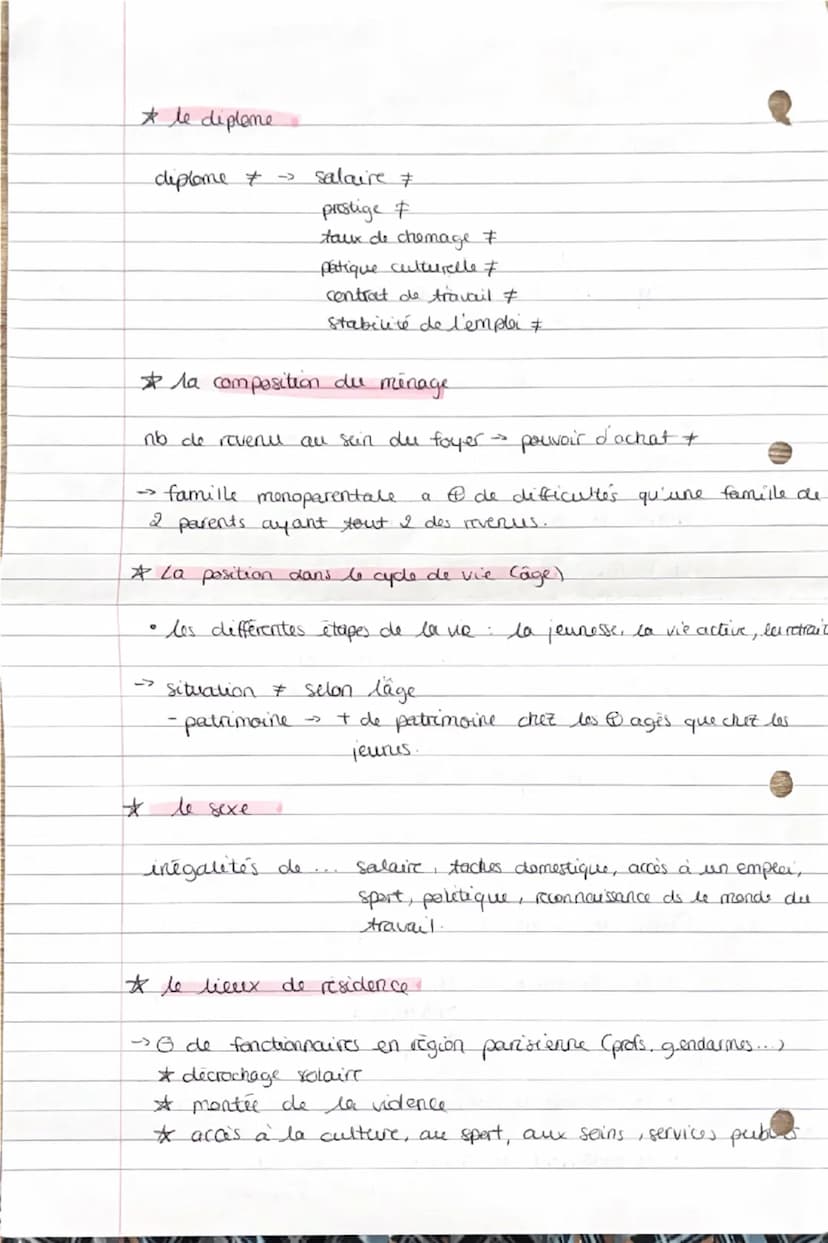 * le diplome
diplome ≠ -> salaire ≠
prestige ≠
taux de chomage ≠
patique culturelle ≠
contrat de travail ≠
stabilité de l'emploi ≠
* la composition du ménage
nb de revenu au sein du foyer -> pouvoir d'achat ≠
-> famille monoparentale a ⊕ de difficultés qu'une famille de
2 parents ayant tout 2 des revenus.
* La position dans le cycle de vie (âge)
• les différentes étapes de la vie : la jeunesse, la vie active, la retrait
-> situation ≠ selon l'âge
- patrimoine -> + de patrimoine chez les ⊕ agés que chez les
jeunes.
* le sexe
inégalités de ... salaire, taches domestique, accès à un emploi,
sport, politique, reconnaissance ds le monde du
travail.
* le lieux de résidence
-> ⊖ de fonctionnaires en région parisienne (profs, gendarmes...)
* décrochage solaire
* montée de la vidence
* accès à la culture, au sport, aux soins, services publics